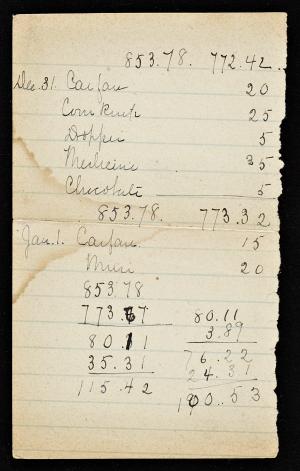 853.78. 772.42
Dec. 31. Carfare 20
Corn 25
5
Medicine 35
Chocolate 5
853.78. 773.32
Jan. 1. Carfare 15
20
853.78
773.67
80.11
35.31
115.42
80.11
3.89
76.22
24.31
100.53